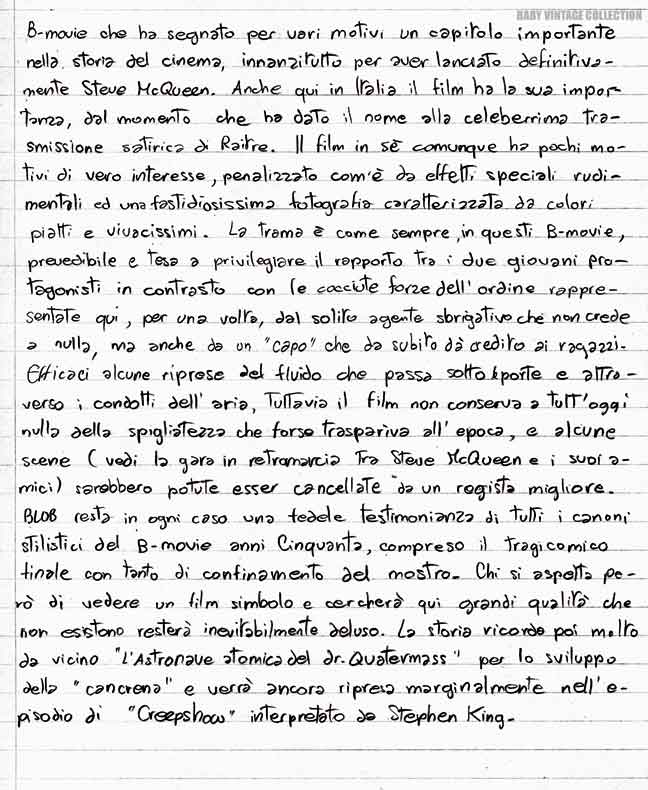 BABY VINTAGE COLLECTION
B-movie che ha segnato per vari motivi un capitolo importante
nella storia del cinema, innanzitutto per aver lanciato definitiva-
mente Steve McQueen. Anche qui in Italia il film ha la sua impor-
tanza, dal momento che ha dato il nome alla celeberrima tra-
smissione satirica di Raitre. Il film in sè comunque ha pochi mo-
tivi di vero interesse, penalizzato com'è da effetti speciali rudi-
mentali ed una fastidiosissima fotografia caratterizzata da colori
piatti e vivacissimi. La trama è come sempre, in questi B-movie,
prevedibile e tesa a privilegiare il rapporto tra i due giovani pro-
tagonisti in contrasto con le cocciute forze dell'ordine rappre-
sentate qui, per una volta, dal solito agente sbrigativo che non crede
a nulla, ma anche da un "capo" che da subito dà credito ai ragazzi.
Efficaci alcune riprese del fluido che passa sotto le porte e attra-
verso i condotti dell'aria, Tuttavia il film non conserva a tutt'oggi
nulla della spigliatezza che forse traspariva all'epoca, e alcune
scene (vedi la gara in retromarcia tra Steve McQueen e i suoi a-
mici) sarebbero potute esser cancellate da un regista migliore.
BLOB resta in ogni caso una fedele testimonianza di tutti i canoni
stilistici del B-movie anni Cinquanta, compreso il tragicomico
finale con tanto di confinamento del mostro. Chi si aspetta pe-
rò di vedere un film simbolo e cercherà qui grandi qualità che
non esistono resterà inevitabilmente deluso. La storia ricorda poi molto
da vicino "L'Astronave atomica del dr. Quatermass" per lo sviluppo
della "cancrena" e verrà ancora ripresa marginalmente nell'e-
pisodio di "Creepshow" interpretato da Stephen King.